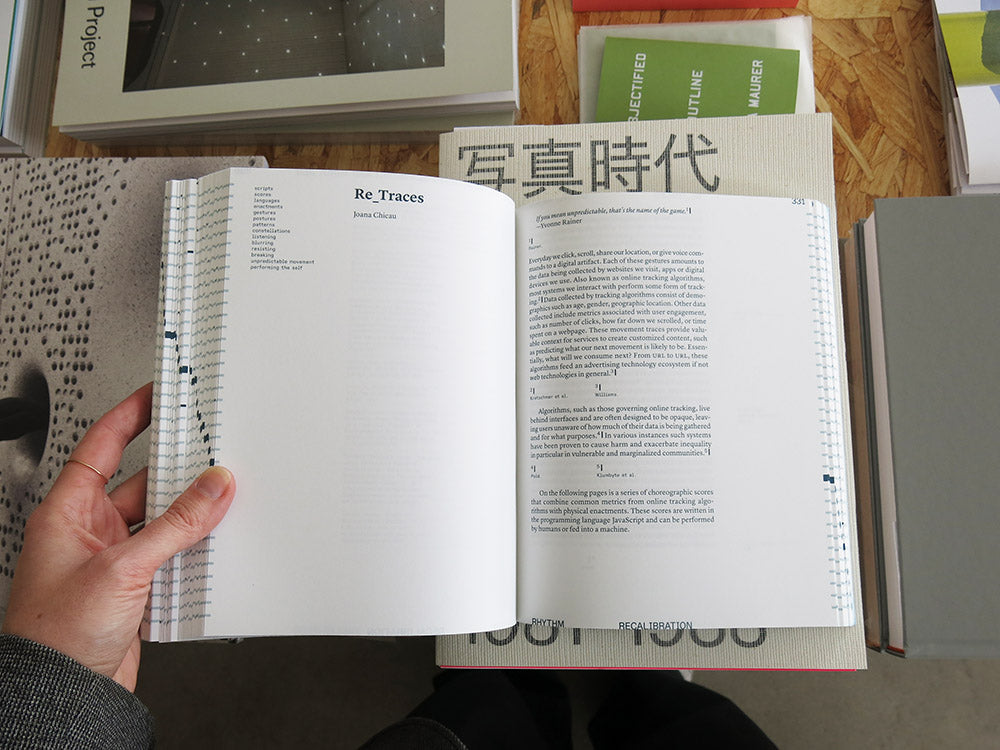 Project
BJECTIFIED
UTLINE
MAURER
写真時代
scripts
scores
languages
enactments
gestures
postures
patterns
constellations
listening
blurring
resisting
breaking
unpredictable movement
performing the self
Re_Traces
Joana Chicau
331
If you mean unpredictable, that's the name of the game.1
—Yvonne Rainer
1
Rainer
Everyday we click, scroll, share our location, or give voice com-
mands to a digital artifact. Each of these gestures amounts to
the data being collected by websites we visit, apps or digital
devices we use. Also known as online tracking algorithms,
most systems we interact with perform some form of track-
ing.2 Data collected by tracking algorithms consist of demo-
graphics such as age, gender, geographic location. Other data
collected include metrics associated with user engagement,
such as number of clicks, how far down we scrolled, or time
spent on a webpage. These movement traces provide valu-
able context for services to create customized content, such
as predicting what our next movement is likely to be. Essen-
tially, what will we consume next? From URL to URL, these
algorithms feed an advertising technology ecosystem if not
web technologies in general.3
2
Kretschmer et al.
3
Williams
Algorithms, such as those governing online tracking, live
behind interfaces and are often designed to be opaque, leav-
ing users unaware of how much of their data is being gathered
and for what purposes.4 In various instances such systems
have been proven to cause harm and exacerbate inequality
in particular in vulnerable and marginalized communities.5
4
5
Klumbyte et al.
On the following pages is a series of choreographic scores
that combine common metrics from online tracking algo-
rithms with physical enactments. These scores are written in
the programming language JavaScript and can be performed
by humans or fed into a machine.
RHYTHM
RECALIBRATION